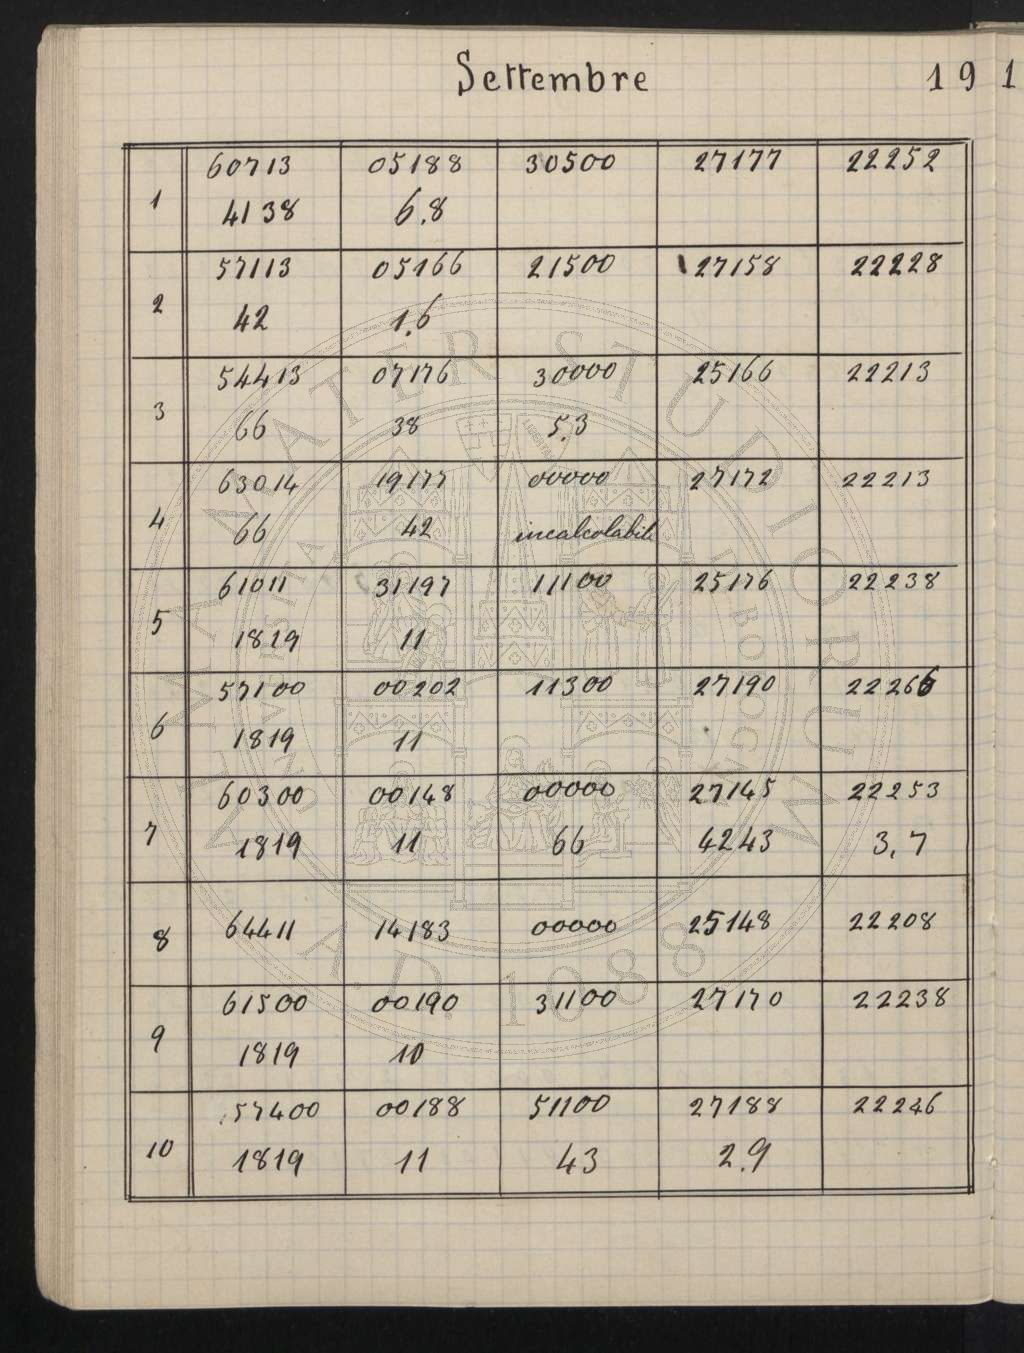 Settembre 191
1 60713 05188 30500 27177 22252
4138 6.8
2 57113 05166 21500 27158 22228
42 1.6
3 54413 07176 30000 25166 22213
66 38 5.3
4 63014 19177 00000 27172 22213
66 42 incalcolabile
5 61011 31197 11100 25176 22238
1819 11
6 57100 00202 11300 27190 22266
1819 11
7 60300 00148 00000 27145 22253
1819 11 66 4243 3,7
8 64411 14183 00000 25148 22208
9 61500 00190 31100 27170 22238
1819 10
10 57400 00188 51100 27188 22246
1819 11 43 2.9
ALMA MATER STUDIORUM
A.D. 1088